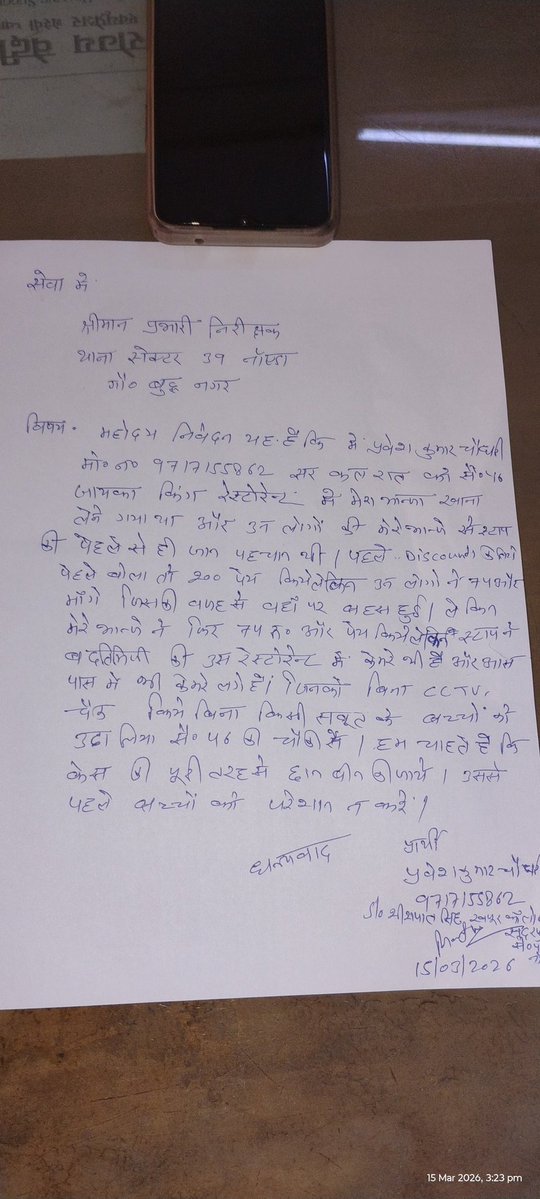 सेवा में
श्रीमान प्रभारी निरीक्षक
थाना सेक्टर 39 नॉएडा
गौ० बुद्ध नगर
विषय. महोदय निवेदन यह है कि में प्रवेश कुमार चौधरी
मो० न० 9717155862 सर कल रात को सै० 46
जायका किंग रेस्टोरेन्ट में मेरा भान्जा खाना
लेने गया था और उन लोगों की मेरे भान्जे से स्टाप
की पेहले से ही जान पहचान थी। पहले Discount के लिये
पेहले बोला तो 200 पेय किये लेकिन उन लोगो ने 75 और
माँगे जिसकी वजह से वहाँ पर बहस हुई। लेकिन
मेरे भान्जे ने फिर 75 रु० और पेय किये लेकिन स्टाप ने
बदतिमिजी की उस रेस्टोरेन्ट में केमरे भी हैं और आस
पास में भी केमरे लगे हैं। जिनको बिना CCTV.
चैक किये बिना किसी सबूत के बच्चों को
उठा लिया सै० 46 की चौकी में। हम चाहते हैं कि
केस की पूरी तरह से छान बीन की जाये। उससे
पहले बच्चों को परेशान न करें।
धन्यवाद
प्रार्थी
प्रवेश कुमार चौधरी
9717155862
S/o श्री शपाल सिंह
15/03/2026
15 Mar 2026, 3:23 pm